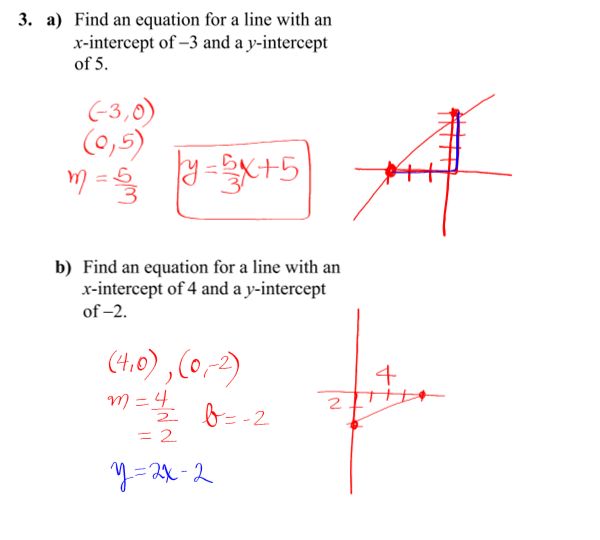 3. a) Find an equation for a line with an
x-intercept of –3 and a y-intercept
of 5.
(-3,0)
(0,5)
m = 5/3
y = 5/3 x + 5
b) Find an equation for a line with an
x-intercept of 4 and a y-intercept
of –2.
(4,0), (0,-2)
m = 4/2
= 2
b = -2
y = 2x - 2
4
2